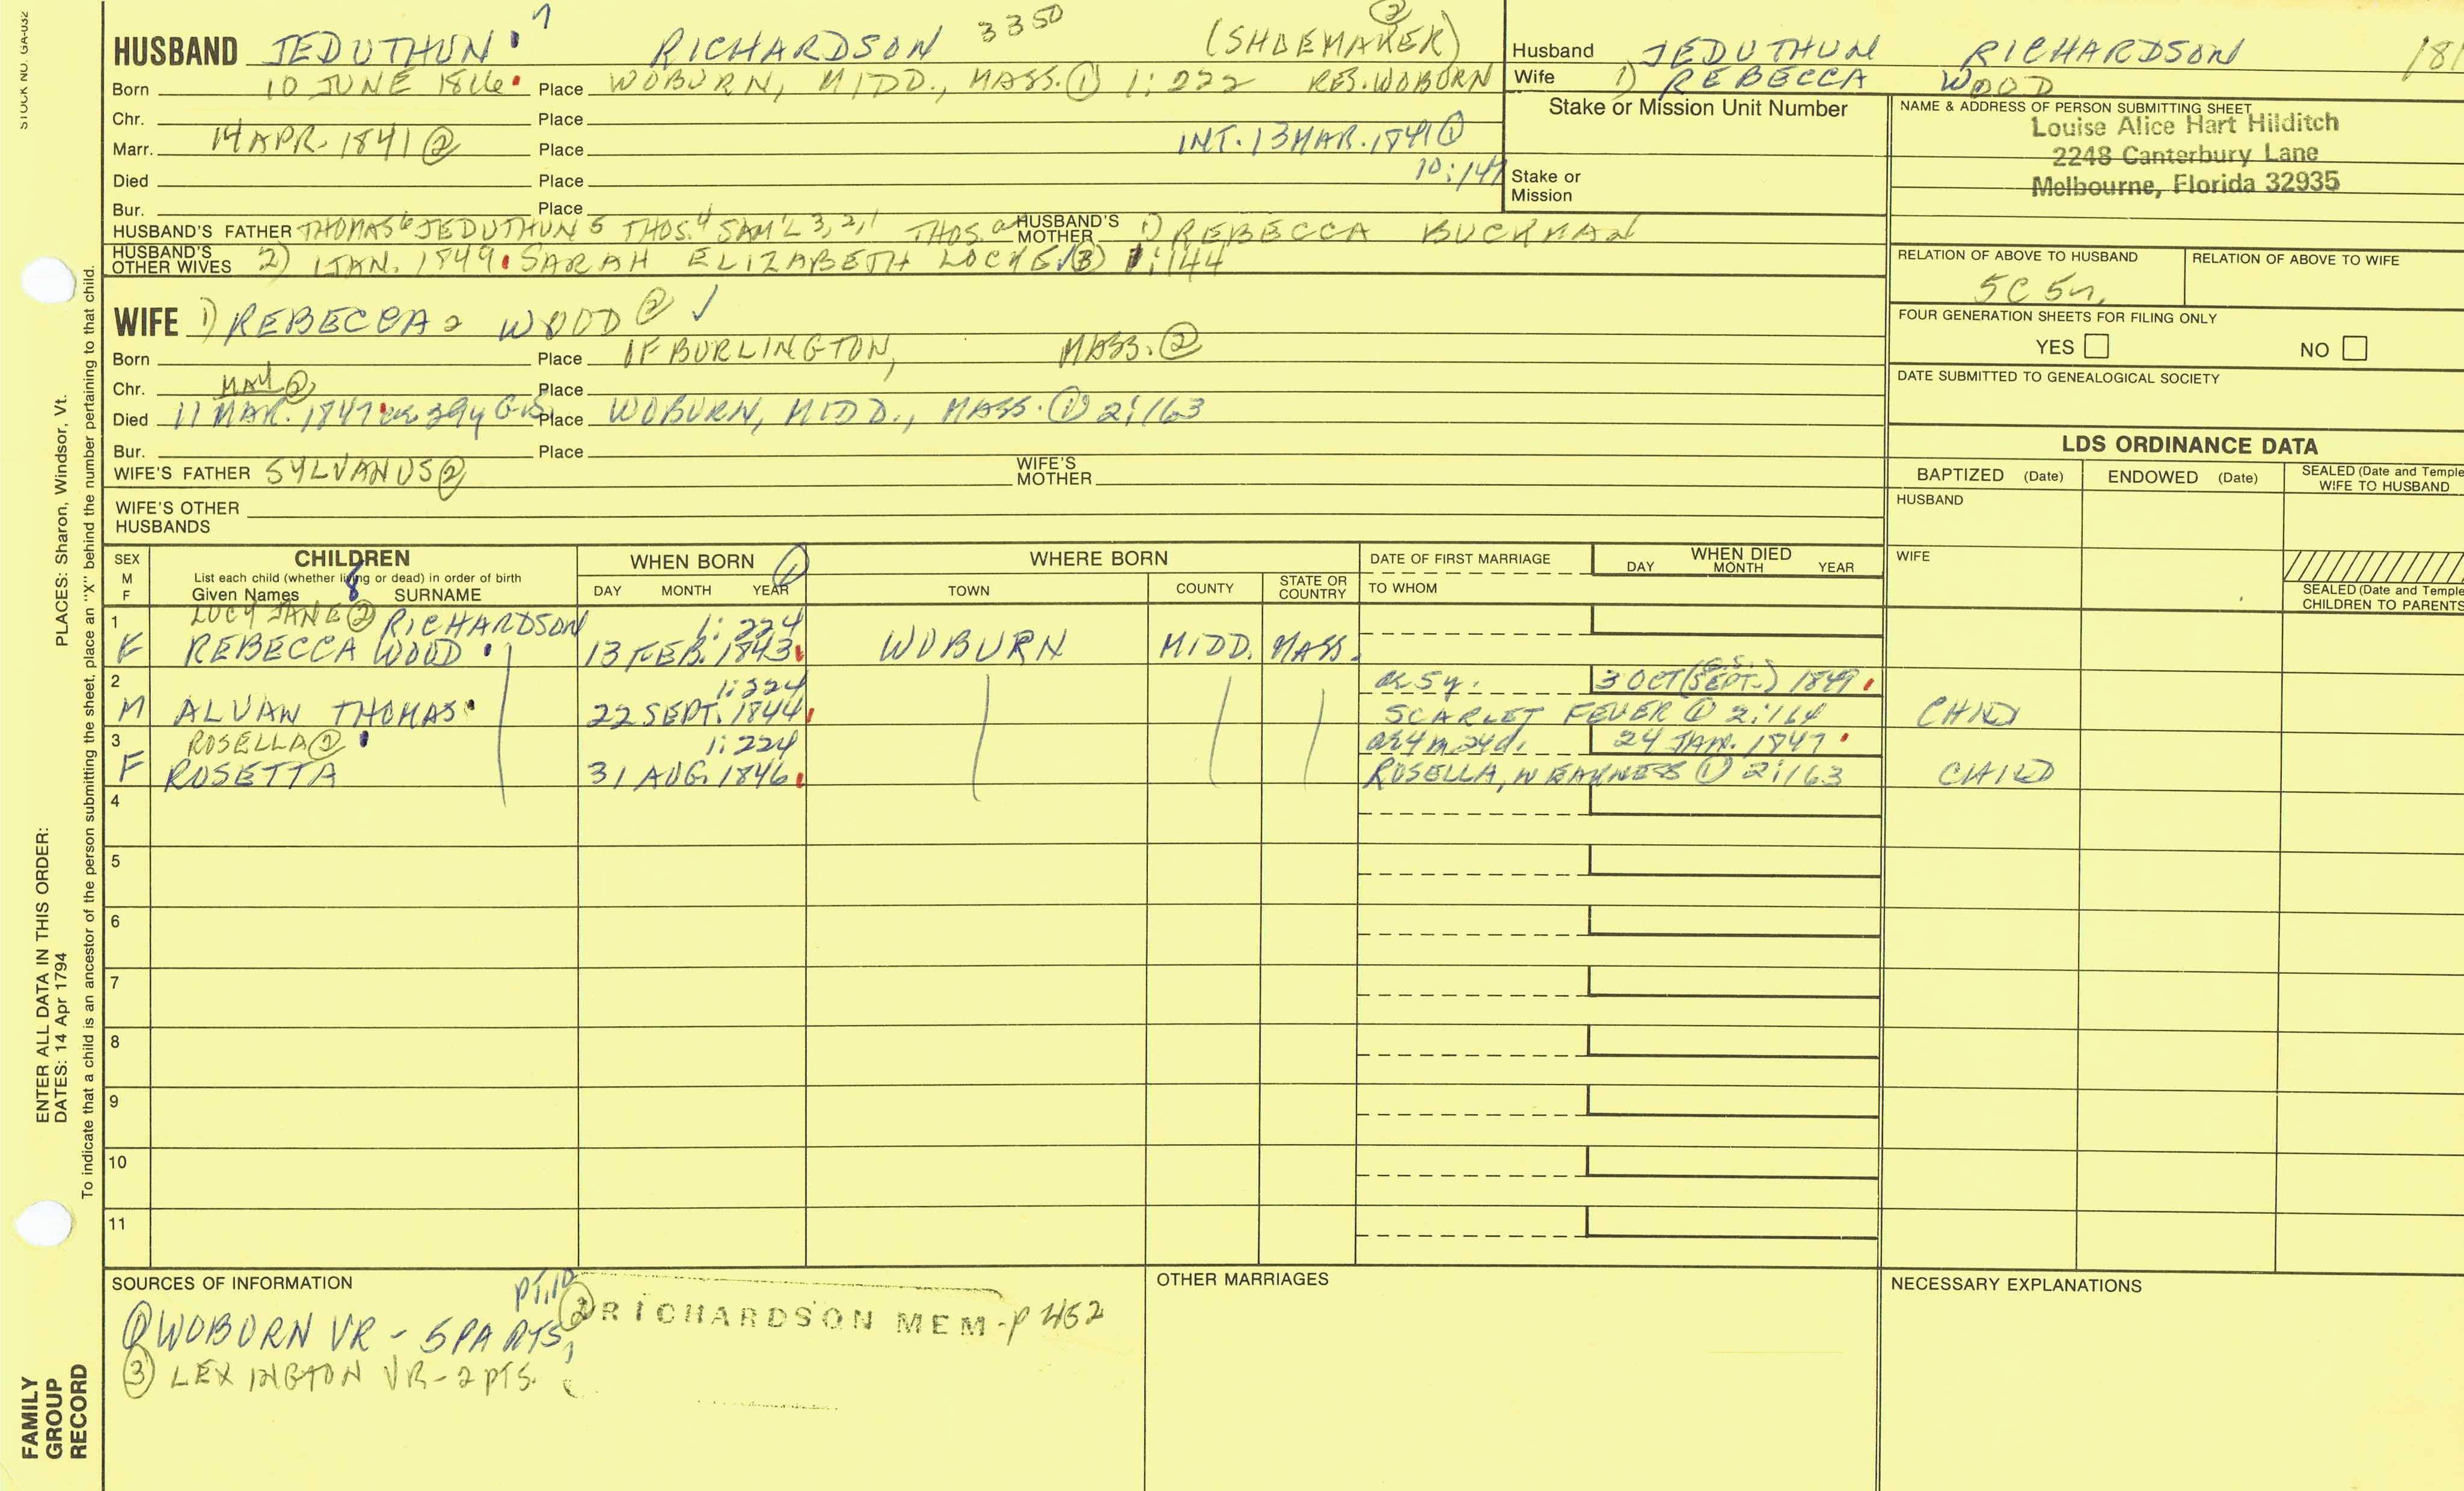 STOCK NO. GA-032
7
3350
HUSBAND JEDUTHUN RICHARDSON (SHOEMAKER) 2
Born 10 JUNE 1816 Place WOBURN, MIDD., MASS. ① 1:222 RES. WOBURN
Chr. Place
Marr. 14 APR. 1841 ② Place INT. 13 MAR. 1841 ①
10:147
Died Place
Bur. Place
HUSBAND'S FATHER THOMAS 6 JEDUTHUN 5 THOS. 4 SAM'L 3, 2, 1 THOS. a HUSBAND'S MOTHER 1) REBECCA BUCKMAN
HUSBAND'S OTHER WIVES 2) 1 JAN. 1849 SARAH ELIZABETH LOCKE ③ 1:144
WIFE 1) REBECCA 2 WOOD ② ✓
Born Place OF BURLINGTON, MASS. ②
Chr. MAY ② Place
Died 11 MAR. 1847 ae 39y G.S. Place WOBURN, MIDD., MASS. ① 2:163
Bur. Place
WIFE'S FATHER SYLVANUS ② WIFE'S MOTHER
WIFE'S OTHER HUSBANDS
Husband JEDUTHUN RICHARDSON 181
Wife 1) REBECCA WOOD
Stake or Mission Unit Number
Stake or Mission
NAME & ADDRESS OF PERSON SUBMITTING SHEET
Louise Alice Hart Hilditch
2248 Canterbury Lane
Melbourne, Florida 32935
RELATION OF ABOVE TO HUSBAND RELATION OF ABOVE TO WIFE
5C 5r.
FOUR GENERATION SHEETS FOR FILING ONLY
YES NO
DATE SUBMITTED TO GENEALOGICAL SOCIETY
LDS ORDINANCE DATA
BAPTIZED (Date) ENDOWED (Date) SEALED (Date and Temple
WIFE TO HUSBAND
HUSBAND
WIFE
SEALED (Date and Temple
CHILDREN TO PARENTS
SEX M F
CHILDREN
List each child (whether living or dead) in order of birth
Given Names 8 SURNAME
WHEN BORN ①
DAY MONTH YEAR
WHERE BORN
TOWN COUNTY STATE OR COUNTRY
DATE OF FIRST MARRIAGE
TO WHOM
WHEN DIED
DAY MONTH YEAR
1 LUCY JANE ② RICHARDSON 1:224
F REBECCA WOOD 13 FEB. 1843 WOBURN MIDD. MASS.
2 1:224 ae 5y. 3 OCT (SEPT. G.S.) 1849
M ALVAN THOMAS 22 SEPT. 1844 SCARLET FEVER ① 2:164 CHILD
3 ROSELLA ② 1:224 ae 4m 24d. 24 JAN. 1847
F ROSETTA 31 AUG. 1846 ROSELLA, WEAKNESS ① 2:163 CHILD
4
5
6
7
8
9
10
11
SOURCES OF INFORMATION
① WOBURN VR - 5 PARTS, PT. 10 ② RICHARDSON MEM - P 452
③ LEXINGTON VR - 2 PTS.
OTHER MARRIAGES
NECESSARY EXPLANATIONS
ENTER ALL DATA IN THIS ORDER:
DATES: 14 Apr 1794 PLACES: Sharon, Windsor, Vt.
To indicate that a child is an ancestor of the person submitting the sheet, place an "X" behind the number pertaining to that child.
FAMILY
GROUP
RECORD